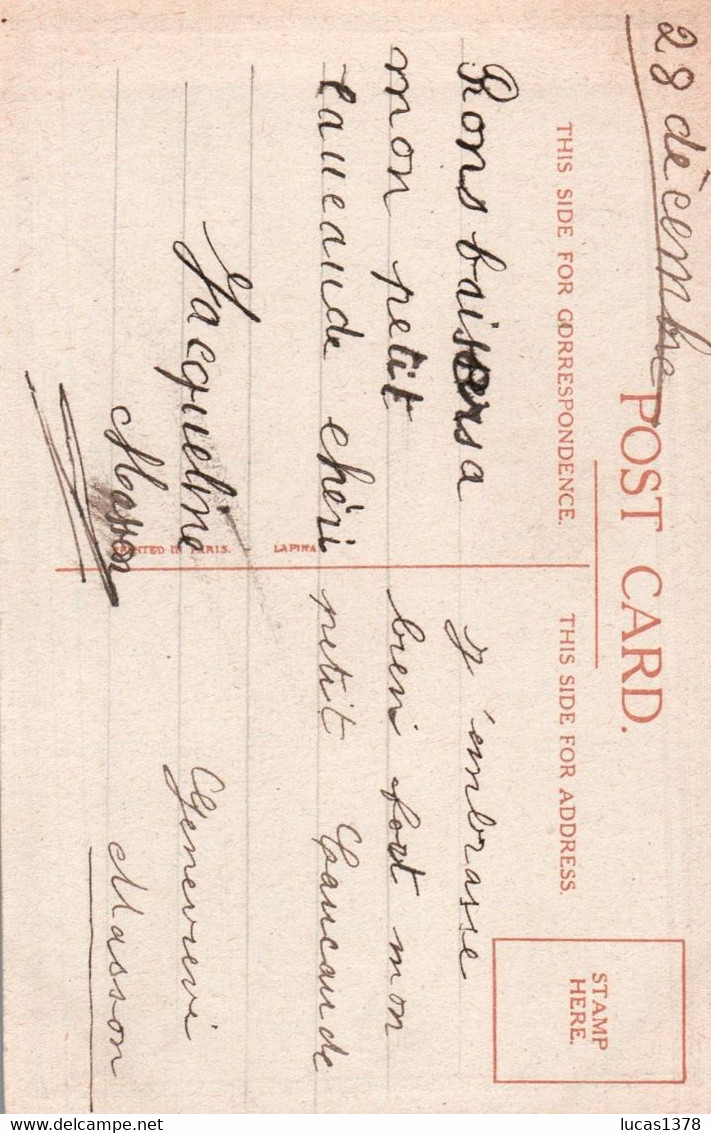 28 décembre
POST CARD.
THIS SIDE FOR CORRESPONDENCE.
Bons baisers a
mon petit
caucaude chéri
Jacqueline
Masson
PRINTED IN PARIS. LAPINA
THIS SIDE FOR ADDRESS.
STAMP
HERE.
J'embrasse
bien fort mon
petit Caucaude
Genevievi
Masson
delcampe.net
lucas1378